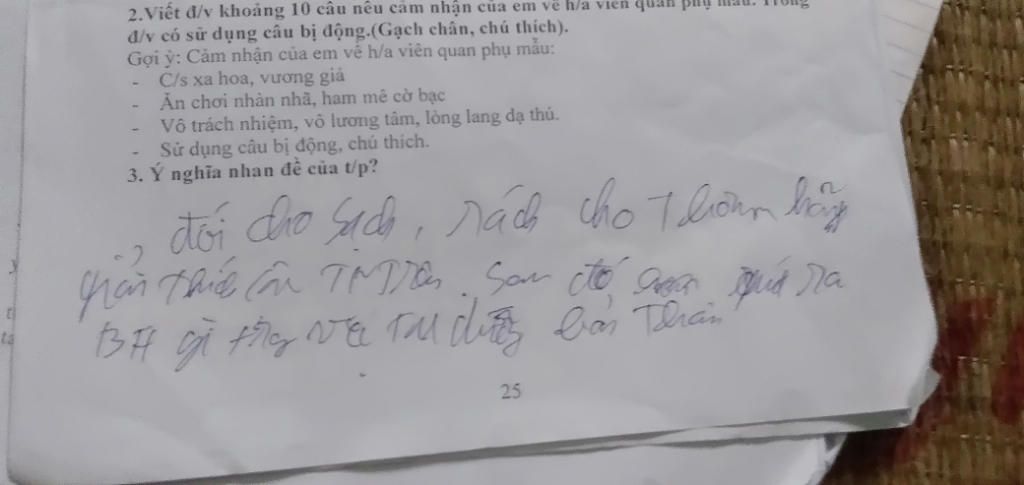 2.Viết đ/v khoảng 10 câu nêu cảm nhận của em về h/a viên quan phụ mẫu. Trong
đ/v có sử dụng câu bị động.(Gạch chân, chú thích).
Gợi ý: Cảm nhận của em về h/a viên quan phụ mẫu:
- C/s xa hoa, vương giả
- Ăn chơi nhàn nhã, ham mê cờ bạc
- Vô trách nhiệm, vô lương tâm, lòng lang dạ thú.
- Sử dụng câu bị động, chú thích.
3. Ý nghĩa nhan đề của t/p?
đói cho sạch, rách cho thơm hãy
giải thích câu TN trên. Sau đó rút ra
BH gì trong việc tu dưỡng bản thân
25